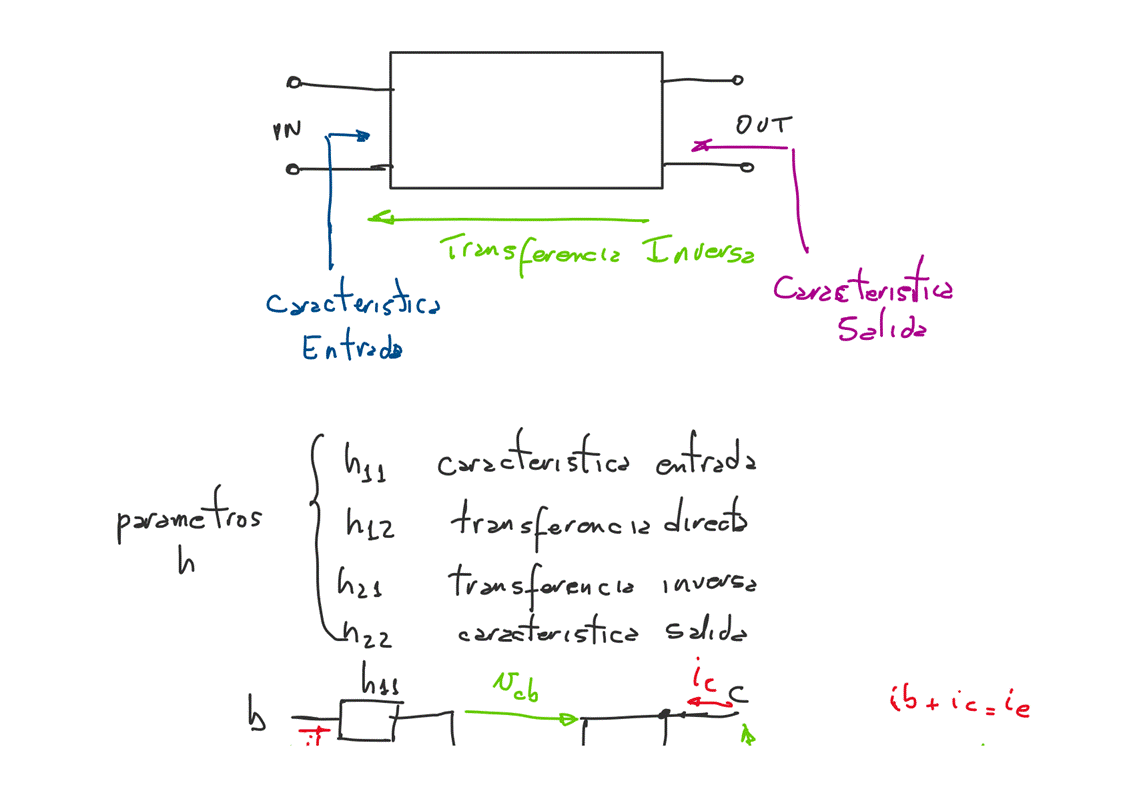 IN
OUT
Transferencia Inversa
caracteristica
Entrada
Caracteristica
Salida
parametros
h
h11 caracteristica entrada
h12 transferencia directa
h21 transferencia inversa
h22 caracteristica salida
h11
b
vcb
ic
c
ib + ic = ie